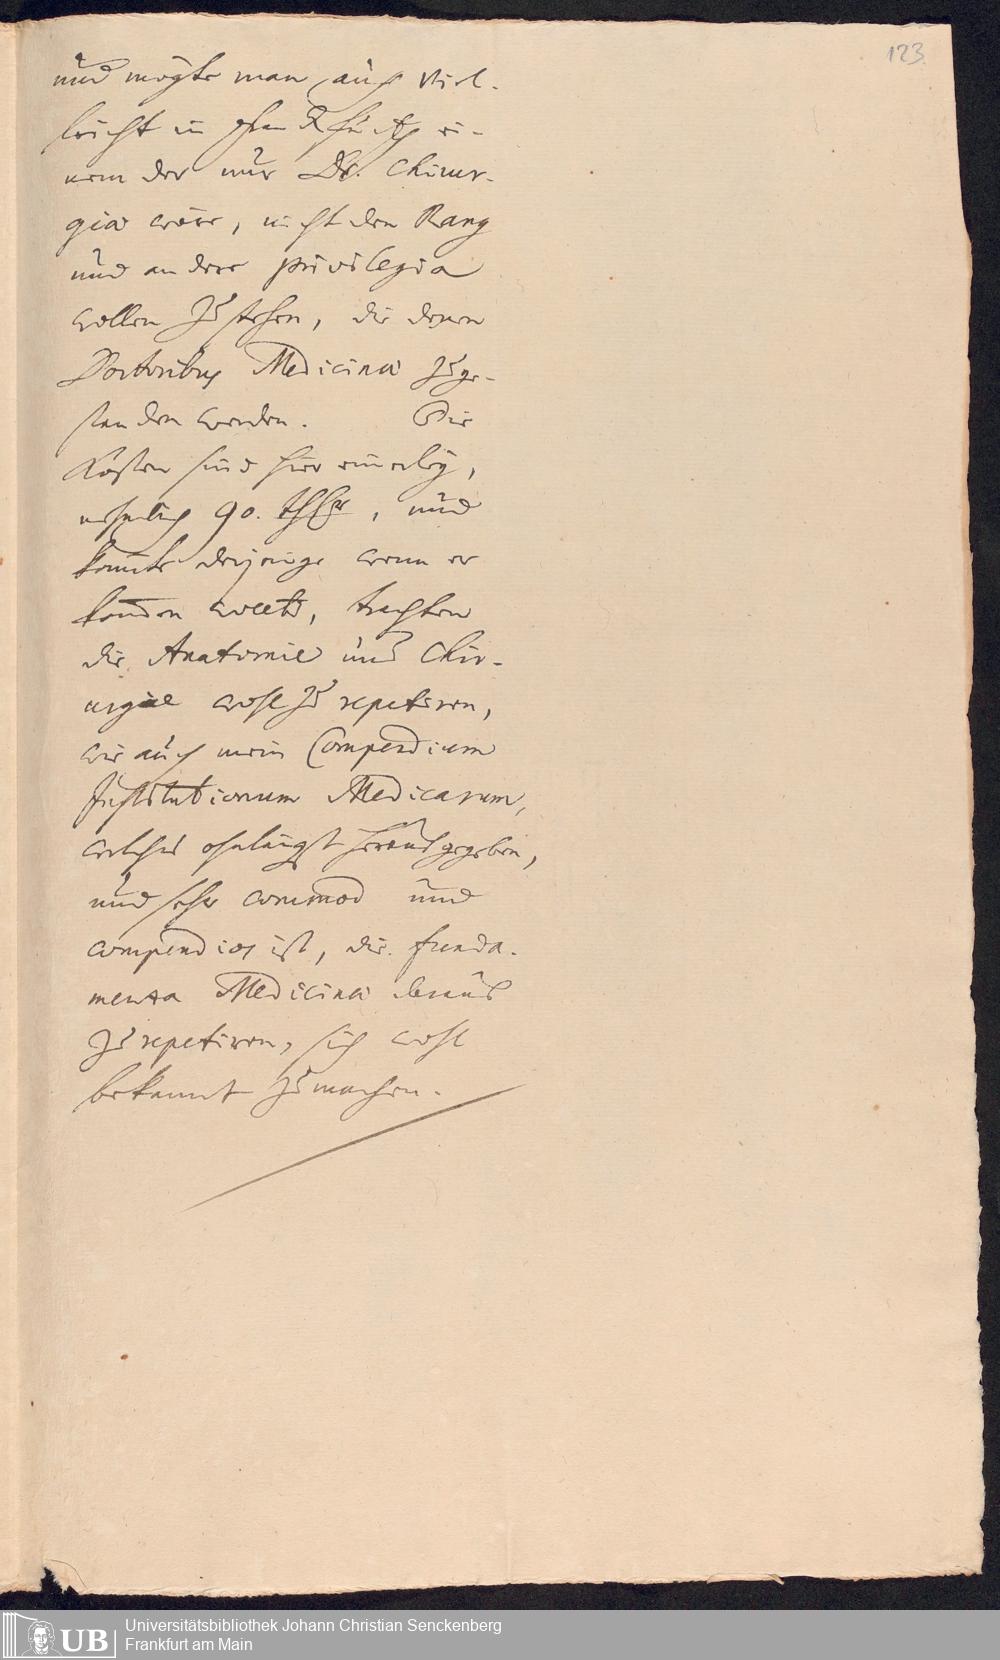 123.
und mögte man auch viel-
leicht in Franckfurth ei-
nem der nur Dr. Chirur-
giæ wäre, nicht den Rang
und andere privilegia
wollen zustehen, die denen
Doctoribus Medicinæ zuge-
standen werden. Die
Kosten sind hier einerley,
nehmlich 90. thlr, und
könnte derjenige wenn er
kommen wollte, trachten
die Anatomie und Chir-
urgie wohl zu repetiren,
wie auch mein Compendium
Institutionum Medicarum,
welches ohnlängst herausgegeben,
und sehr commod und
compendios ist, die funda-
menta Medicinæ daraus
zu repetiren, sich wohl
bekannt zu machen.
UB
Universitätsbibliothek Johann Christian Senckenberg
Frankfurt am Main